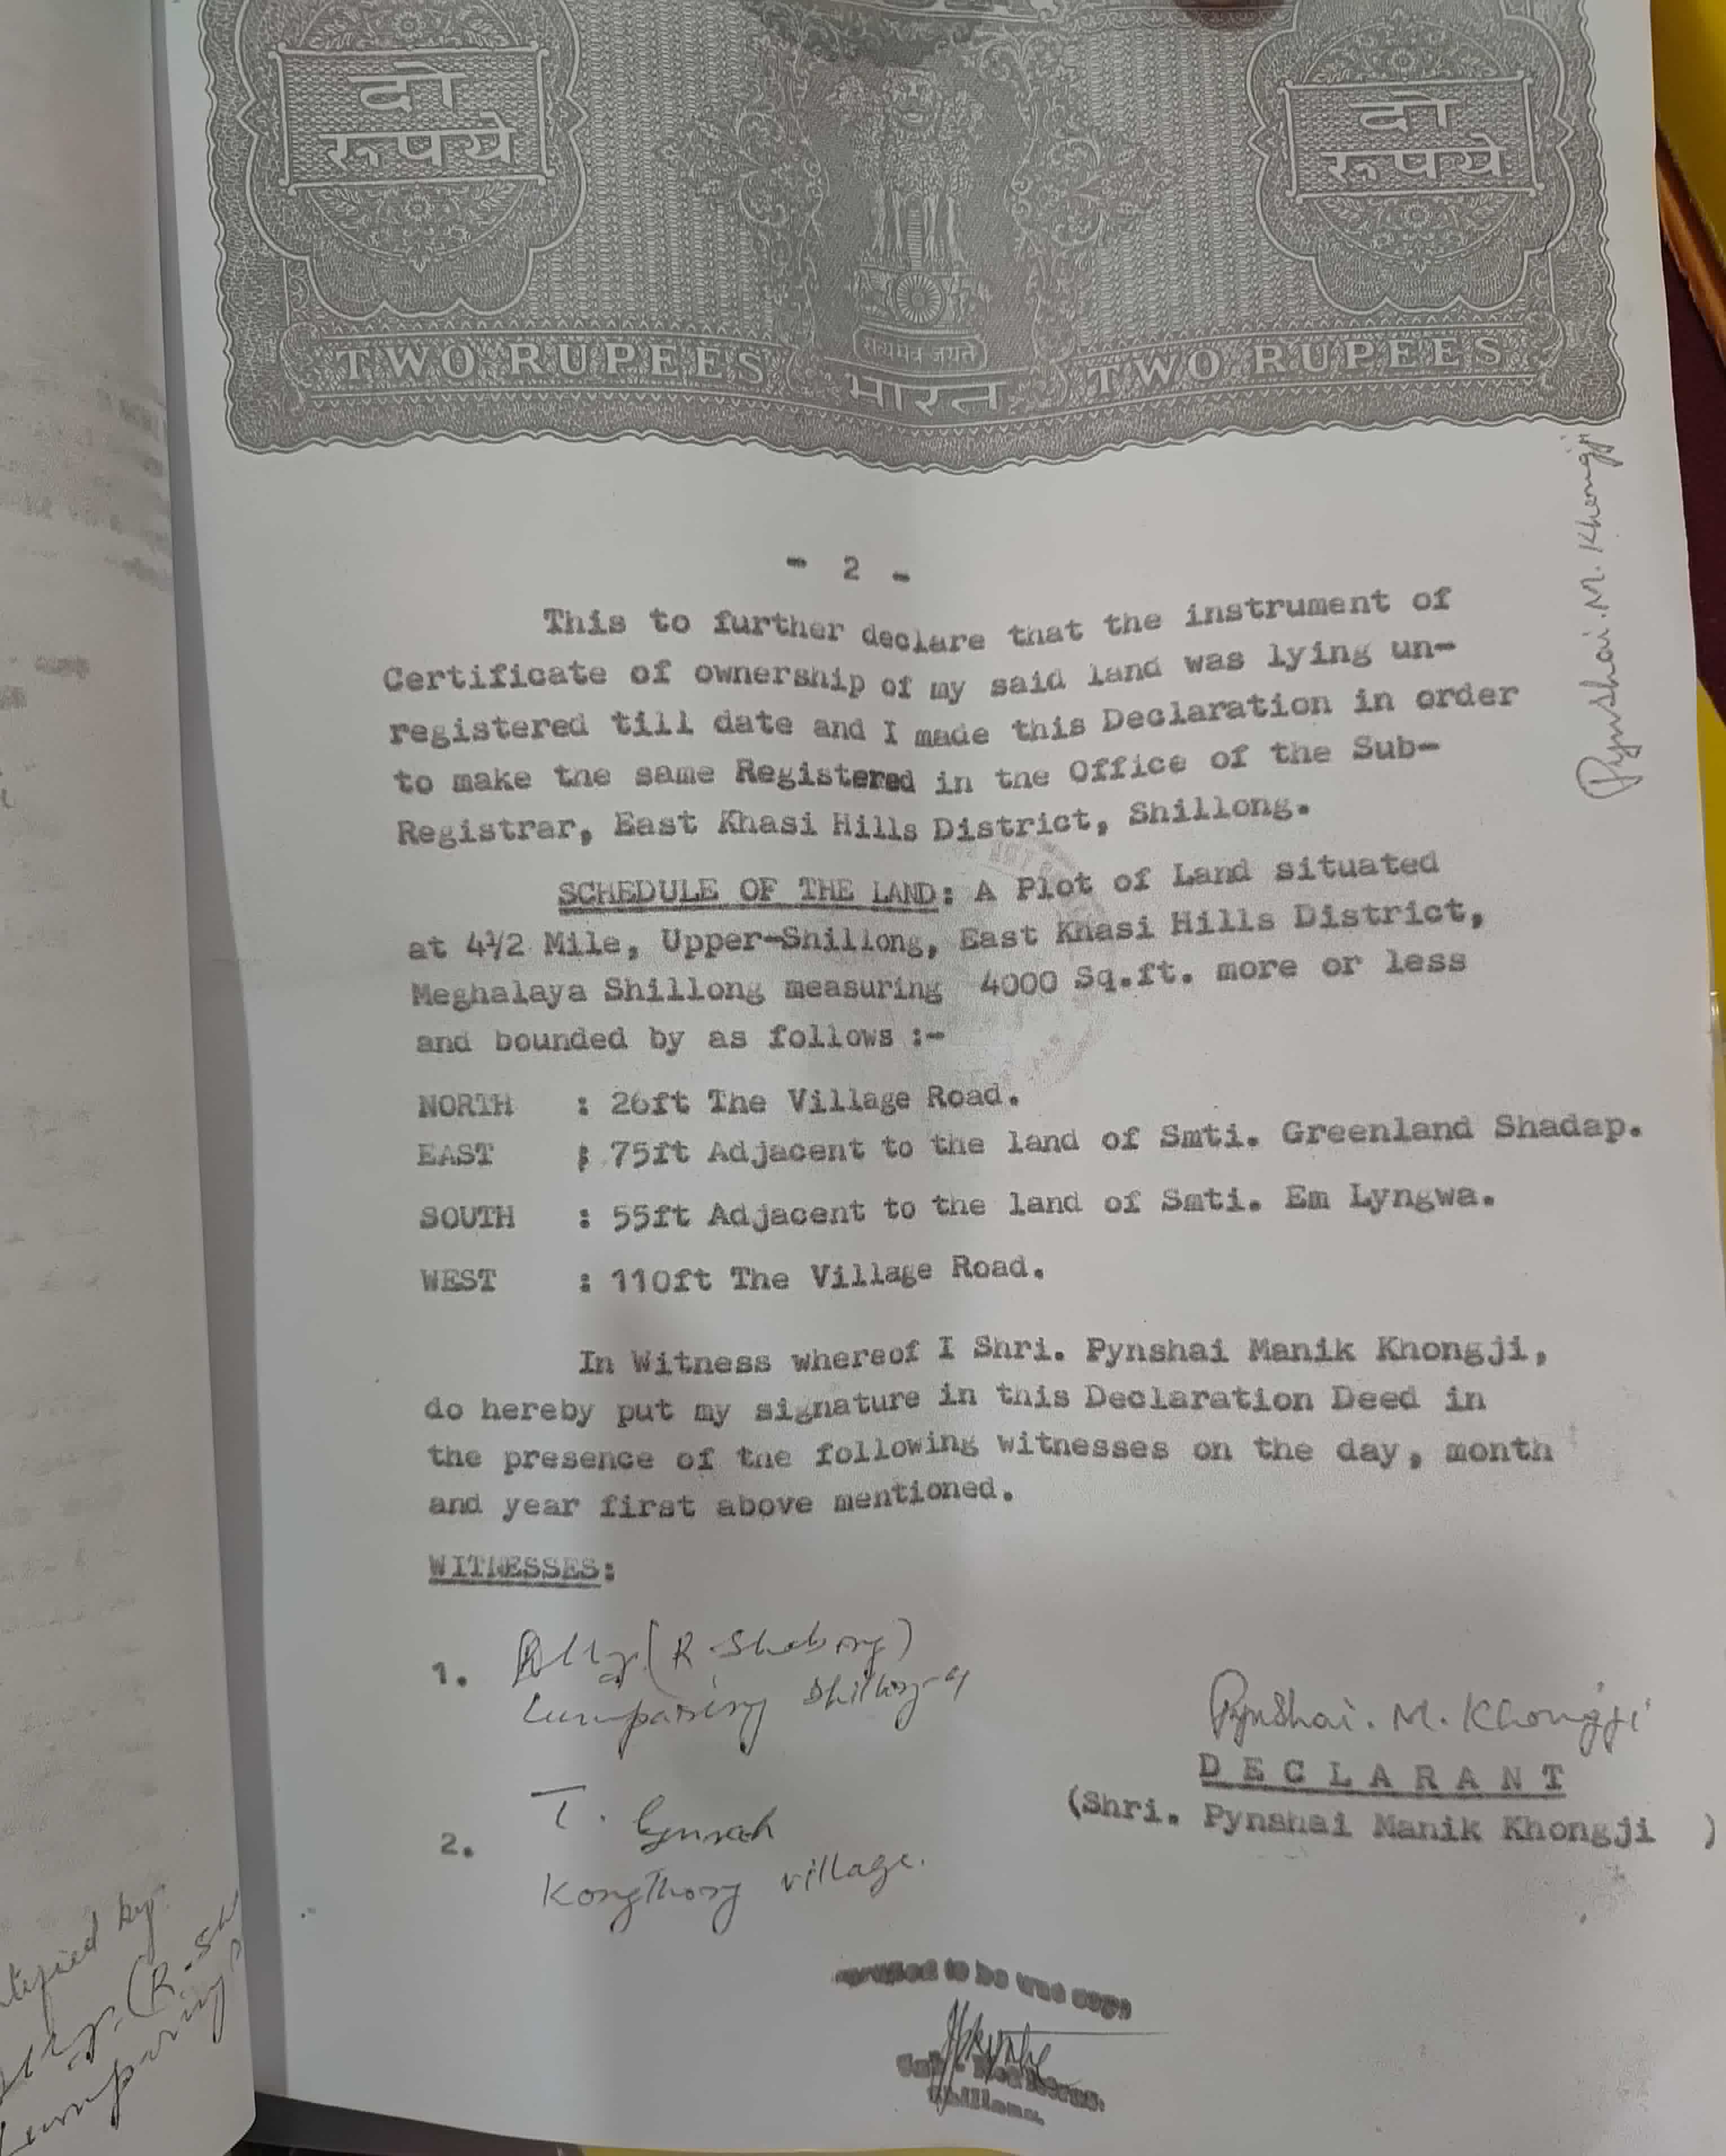 दो
रूपये
दो
रूपये
TWO RUPEES
सत्यमेव जयते
भारत
TWO RUPEES
Pynshai. M. Khongji
- 2 -
This to further declare that the instrument of
Certificate of ownership of my said land was lying un-
registered till date and I made this Declaration in order
to make the same Registered in the Office of the Sub-
Registrar, East Khasi Hills District, Shillong.
SCHEDULE OF THE LAND: A Plot of Land situated
at 4½ Mile, Upper-Shillong, East Khasi Hills District,
Meghalaya Shillong measuring 4000 Sq.ft. more or less
and bounded by as follows :-
NORTH : 26ft The Village Road.
EAST : 75ft Adjacent to the land of Smti. Greenland Shadap.
SOUTH : 55ft Adjacent to the land of Smti. Em Lyngwa.
WEST : 110ft The Village Road.
In Witness whereof I Shri. Pynshai Manik Khongji,
do hereby put my signature in this Declaration Deed in
the presence of the following witnesses on the day, month
and year first above mentioned.
WITNESSES:
1. (R. Shabong)
Lumparing Shillong-4
2. T.
Kongthong village.
Pynshai. M. Khongji
DECLARANT
(Shri. Pynshai Manik Khongji )
to be true copy
Shillong.
by:
(R. Sh